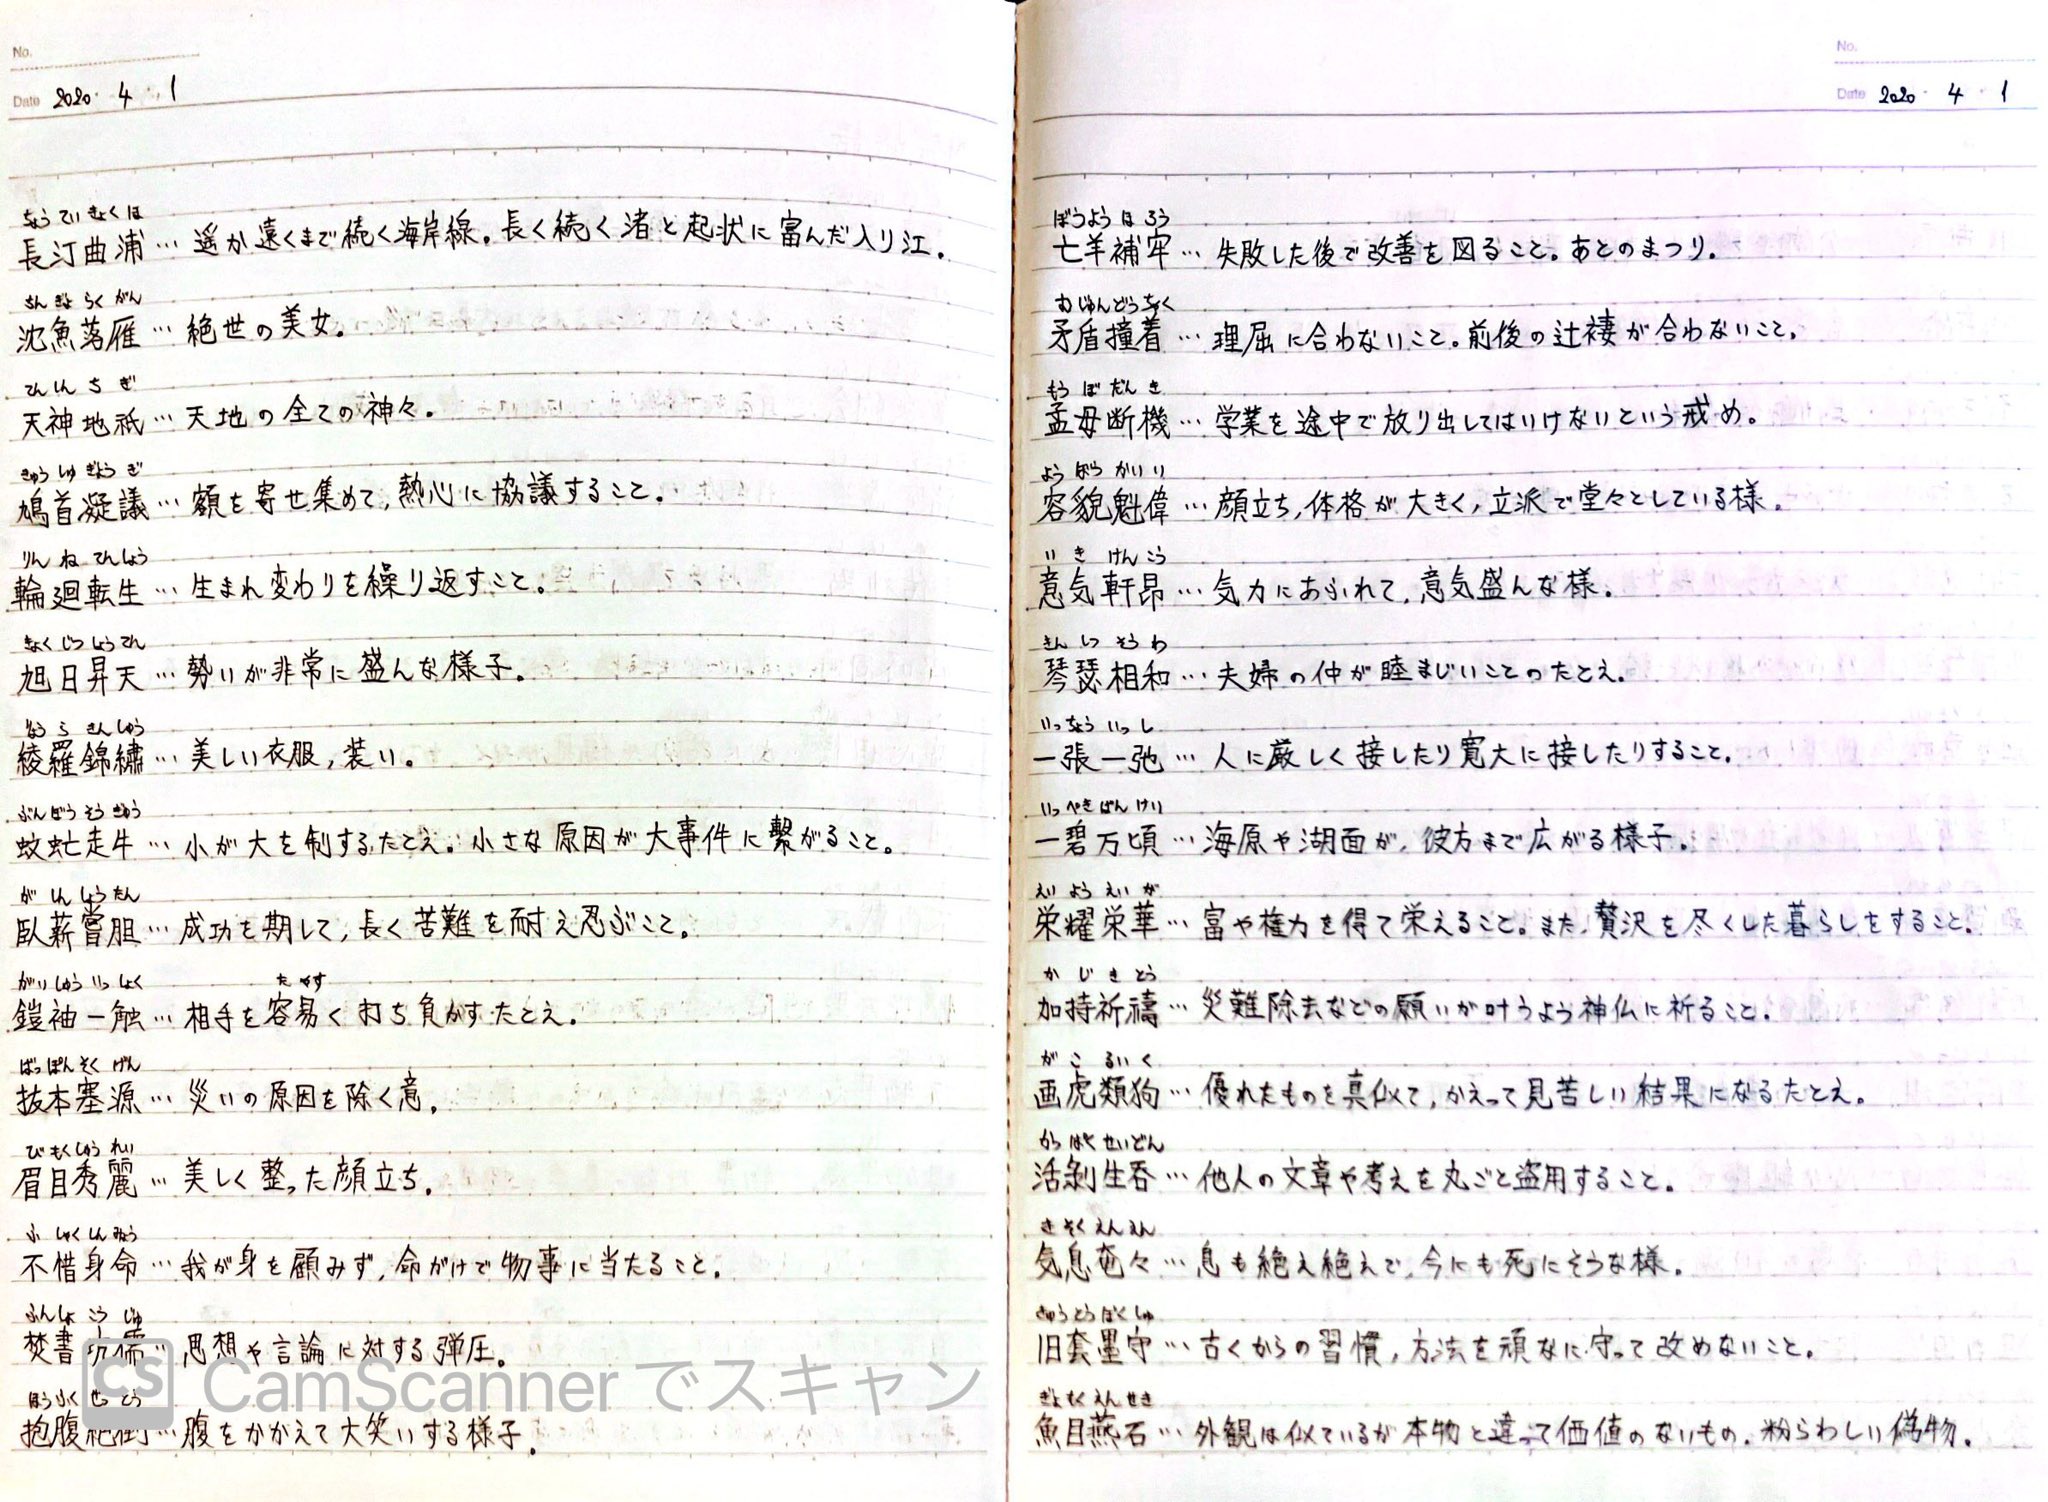 No.
Date 2020・4・1
ちょうていきょくほ
長汀曲浦…遥か遠くまで続く海岸線。長く続く渚と起状に富んだ入り江。
ちんぎょらくがん
沈魚落雁…絶世の美女。
てんしんちぎ
天神地祇…天地の全ての神々。
きゅうしゅぎょうぎ
鳩首凝議…額を寄せ集めて,熱心に協議すること。
りんねてんしょう
輪廻転生…生まれ変わりを繰り返すこと。
きょくじつしょうてん
旭日昇天…勢いが非常に盛んな様子。
りょうらきんしゅう
綾羅錦繍…美しい衣服,装い。
ぶんぼうそうぎゅう
蚊虻走牛…小が大を制するたとえ。小さな原因が大事件に繋がること。
がしんしょうたん
臥薪嘗胆…成功を期して,長く苦難を耐え忍ぶこと。
がいしゅういっしょく たやす
鎧袖一触…相手を容易く打ち負かすたとえ。
ばっぽんそくげん
抜本塞源…災いの原因を除く意。
びもくしゅうれい
眉目秀麗…美しく整った顔立ち。
ふしゃくしんみょう
不惜身命…我が身を顧みず,命がけで物事に当たること。
ふんしょこうじゅ
焚書坑儒…思想や言論に対する弾圧。
ほうふくぜっとう
抱腹絶倒…腹をかかえて大笑いする様子。
CS CamScannerでスキャン
No.
Date 2020・4・1
ぼうようほろう
亡羊補牢…失敗した後で改善を図ること。あとのまつり。
むじゅんどうちゃく
矛盾撞着…理屈に合わないこと。前後の辻褄が合わないこと。
もうぼだんき
孟母断機…学業を途中で放り出してはいけないという戒め。
ようぼうかいい
容貌魁偉…顔立ち,体格が大きく,立派で堂々としている様。
いきけんこう
意気軒昂…気力にあふれて,意気盛んな様。
きんしつそうわ
琴瑟相和…夫婦の仲が睦まじいことのたとえ。
いっちょういっし
一張一弛…人に厳しく接したり寛大に接したりすること。
いっぺきばんけい
一碧万頃…海原や湖面が,彼方まで広がる様子。
えいようえいが
栄耀栄華…富や権力を得て栄えること。また,贅沢を尽くした暮らしをすること。
かじきとう
加持祈禱…災難除去などの願いが叶うよう神仏に祈ること。
がこるいく
画虎類狗…優れたものを真似て,かえって見苦しい結果になるたとえ。
かっぱくせいどん
活剥生呑…他人の文章や考えを丸ごと盗用すること。
きそくえんえん
気息奄々…息も絶え絶えで,今にも死にそうな様。
きゅうとうぼくしゅ
旧套墨守…古くからの習慣,方法を頑なに守って改めないこと。
ぎょもくえんせき
魚目燕石…外観は似ているが本物と違って価値のないもの。紛らわしい偽物。